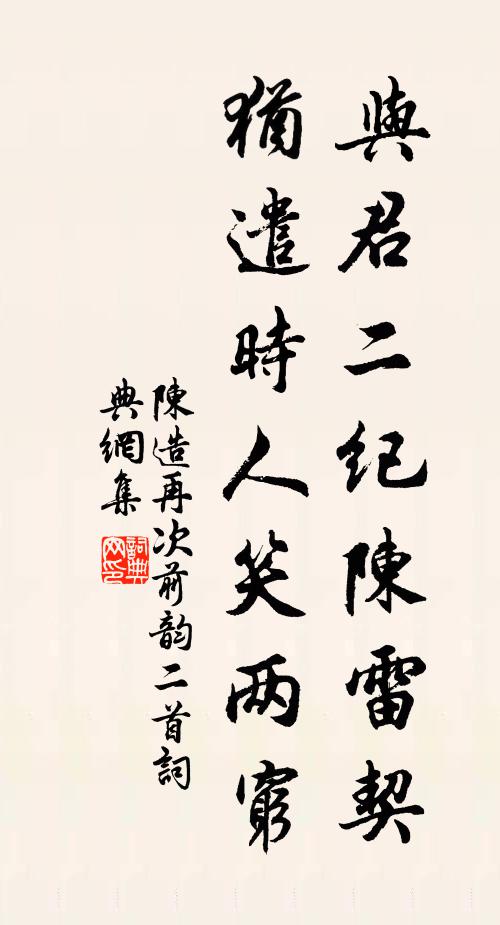 與君二纪陳雷契
猶遣時人笑两窮
陳造再次前韵二首詞
典網集
詞典
网印